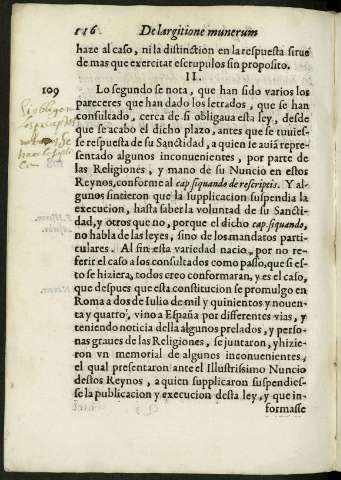 116 De largitione munerum
haze al caso, ni la distinction en la respuesta sirue
de mas que exercitar escrupulos sin proposito.
II.
109 Lo segundo se nota, que han sido varios los
pareceres que han dado los letrados, que se han
consultado, cerca de si obligaua esta ley, desde
que se acabo el dicho plazo, antes que se tuuies-
se respuesta de su Sanctidad, a quien se auia repre-
sentado algunos inconuenientes, por parte de
las Religiones, y mano de su Nuncio en estos
Reynos, conforme al cap. siquando de rescriptis. Y al-
gunos sintieron que la supplicacion suspendia la
execucion, hasta saber la voluntad de su Sancti-
dad, y otros que no, porque el dicho cap. siquando,
no habla de las leyes, sino de los mandatos parti-
culares. Al fin esta variedad nacio, por no re-
ferir el caso a los consultados como passo, que si es-
to se hiziera, todos creo conformaran, y es el caso,
que despues que esta constitucion se promulgo en
Roma a dos de Iulio de mil y quinientos y nouen-
ta y quatro, vino a España por differentes vias, y
teniendo noticia della algunos prelados, y perso-
nas graues de las Religiones, se juntaron, y hizie-
ron vn memorial de algunos inconuenientes,
el qual presentaron ante el Illustrissimo Nuncio
destos Reynos, a quien supplicaron suspendies-
se la publicacion y execucion desta ley, y que in-
formasse